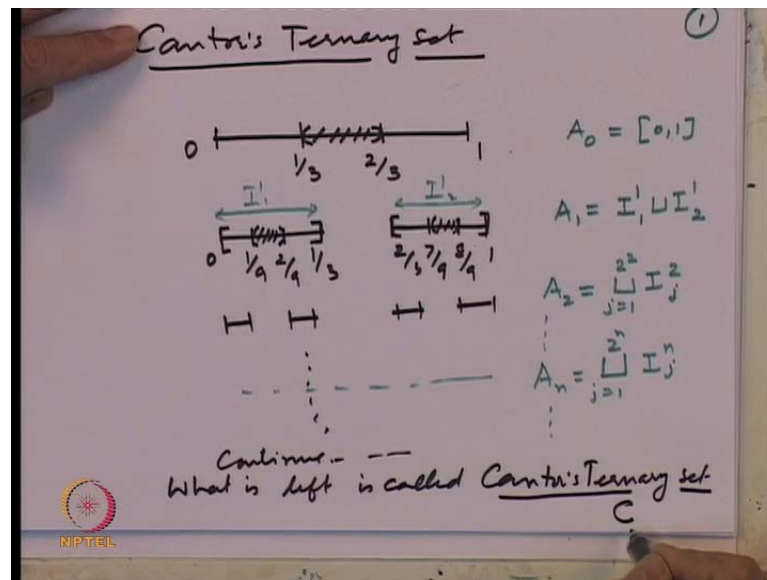 ①
Cantor's Ternary set
0 1/3 2/3 1
A₀ = [0,1]
I¹₁ I¹₂
A₁ = I¹₁ ⊔ I¹₂
0 1/9 2/9 1/3 2/3 7/9 8/9 1
A₂ = ⊔_{j=1}^{2²} I²_j
Aₙ = ⊔_{j=1}^{2ⁿ} Iⁿ_j
Continue - - -
What is left is called Cantor's Ternary set
C
NPTEL